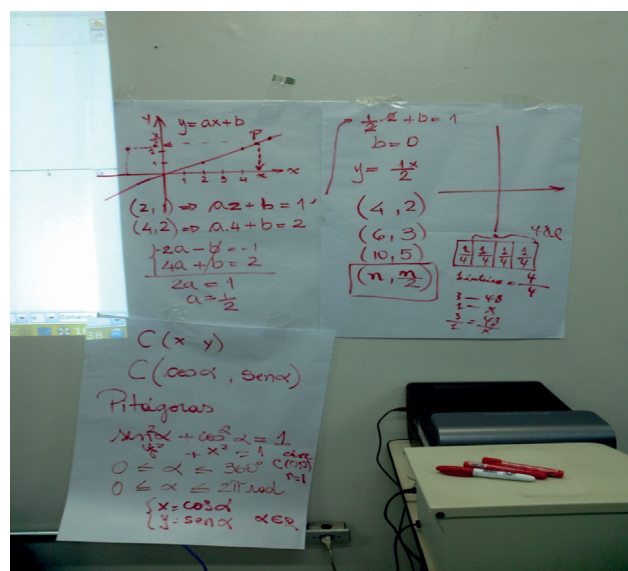 y
y = ax + b
P
1 2 3 4 x
x
(2,1) ⇒ a.2 + b = 1
(4,2) ⇒ a.4 + b = 2
-2a - b = -1
4a + b = 2
2a = 1
a = 1/2
1/2 · 2 + b = 1
b = 0
y = 1x/2
(4, 2)
(6, 3)
(10, 5)
(n, n/2)
1/4 1/4 1/4 1/4
1 inteiro = 4/4
3 — 48
1 — x
3/1 = 48/x
C(x y)
C(cosα, senα)
Pitágoras
sen²α + cos²α = 1
y² + x² = 1
0 ≤ α ≤ 360°
C(0,0)
r=1
0 ≤ α ≤ 2π rad
x = cosα
y = senα α∈R